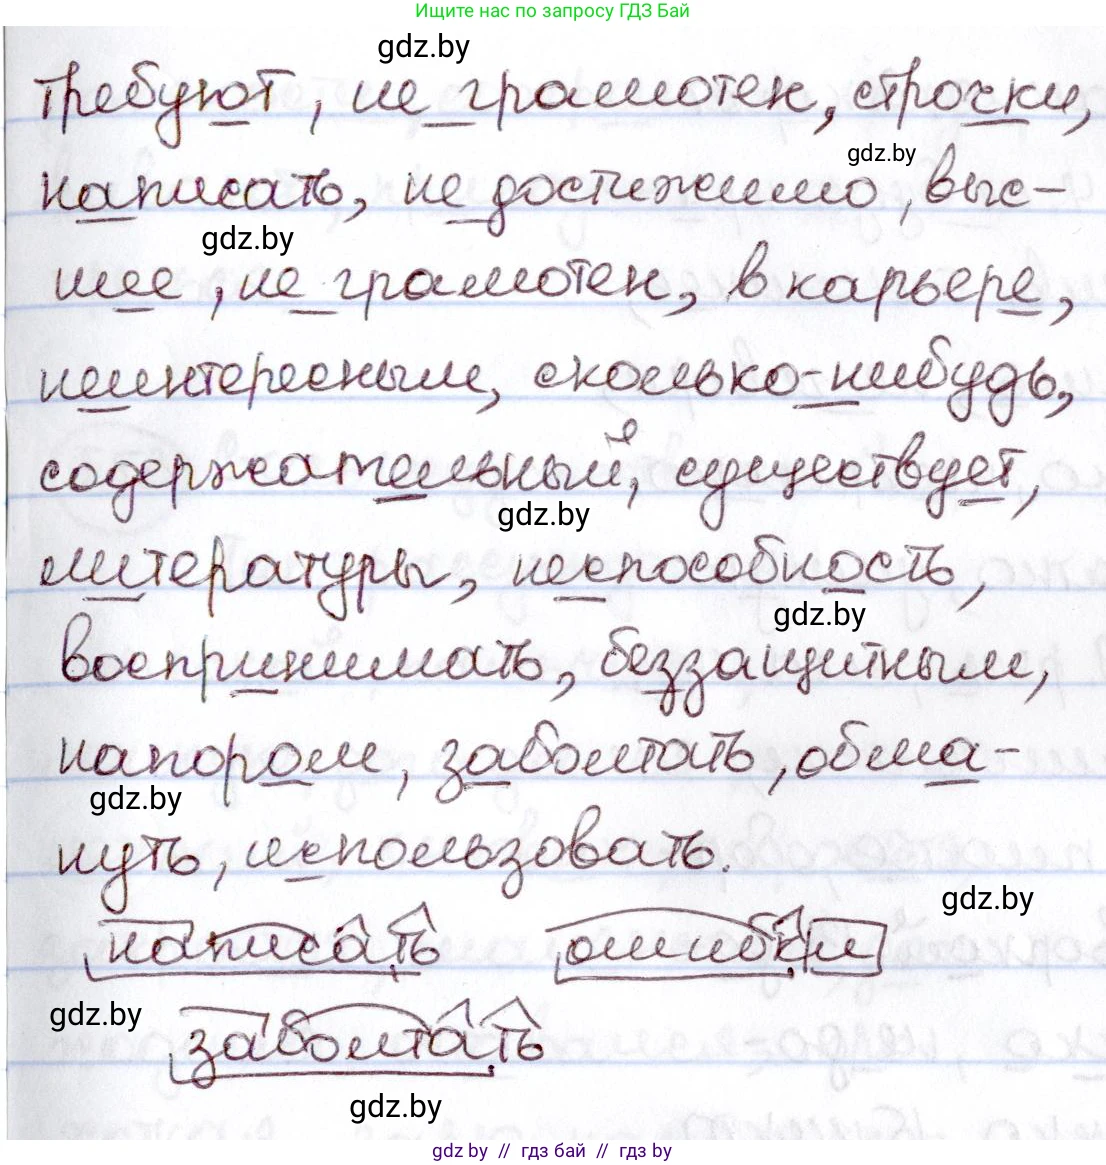 Ищите нас по запросу ГДЗ Бай
gdz.by
требуют, не грамотен, строчки,
gdz.by
написать, не достижимо, выс-
gdz.by
шее, не грамотен, в карьере,
неинтересным, сколько-нибудь,
содержательный, существует,
gdz.by
литературы, неспособность,
gdz.by
воспринимать, беззащитным,
напором, заболтать, обма-
gdz.by
нуть, использовать.
gdz.by
написать ошибки
gdz.by
заболтать
gdz.by
gdz.by // гдз бай // гдз by